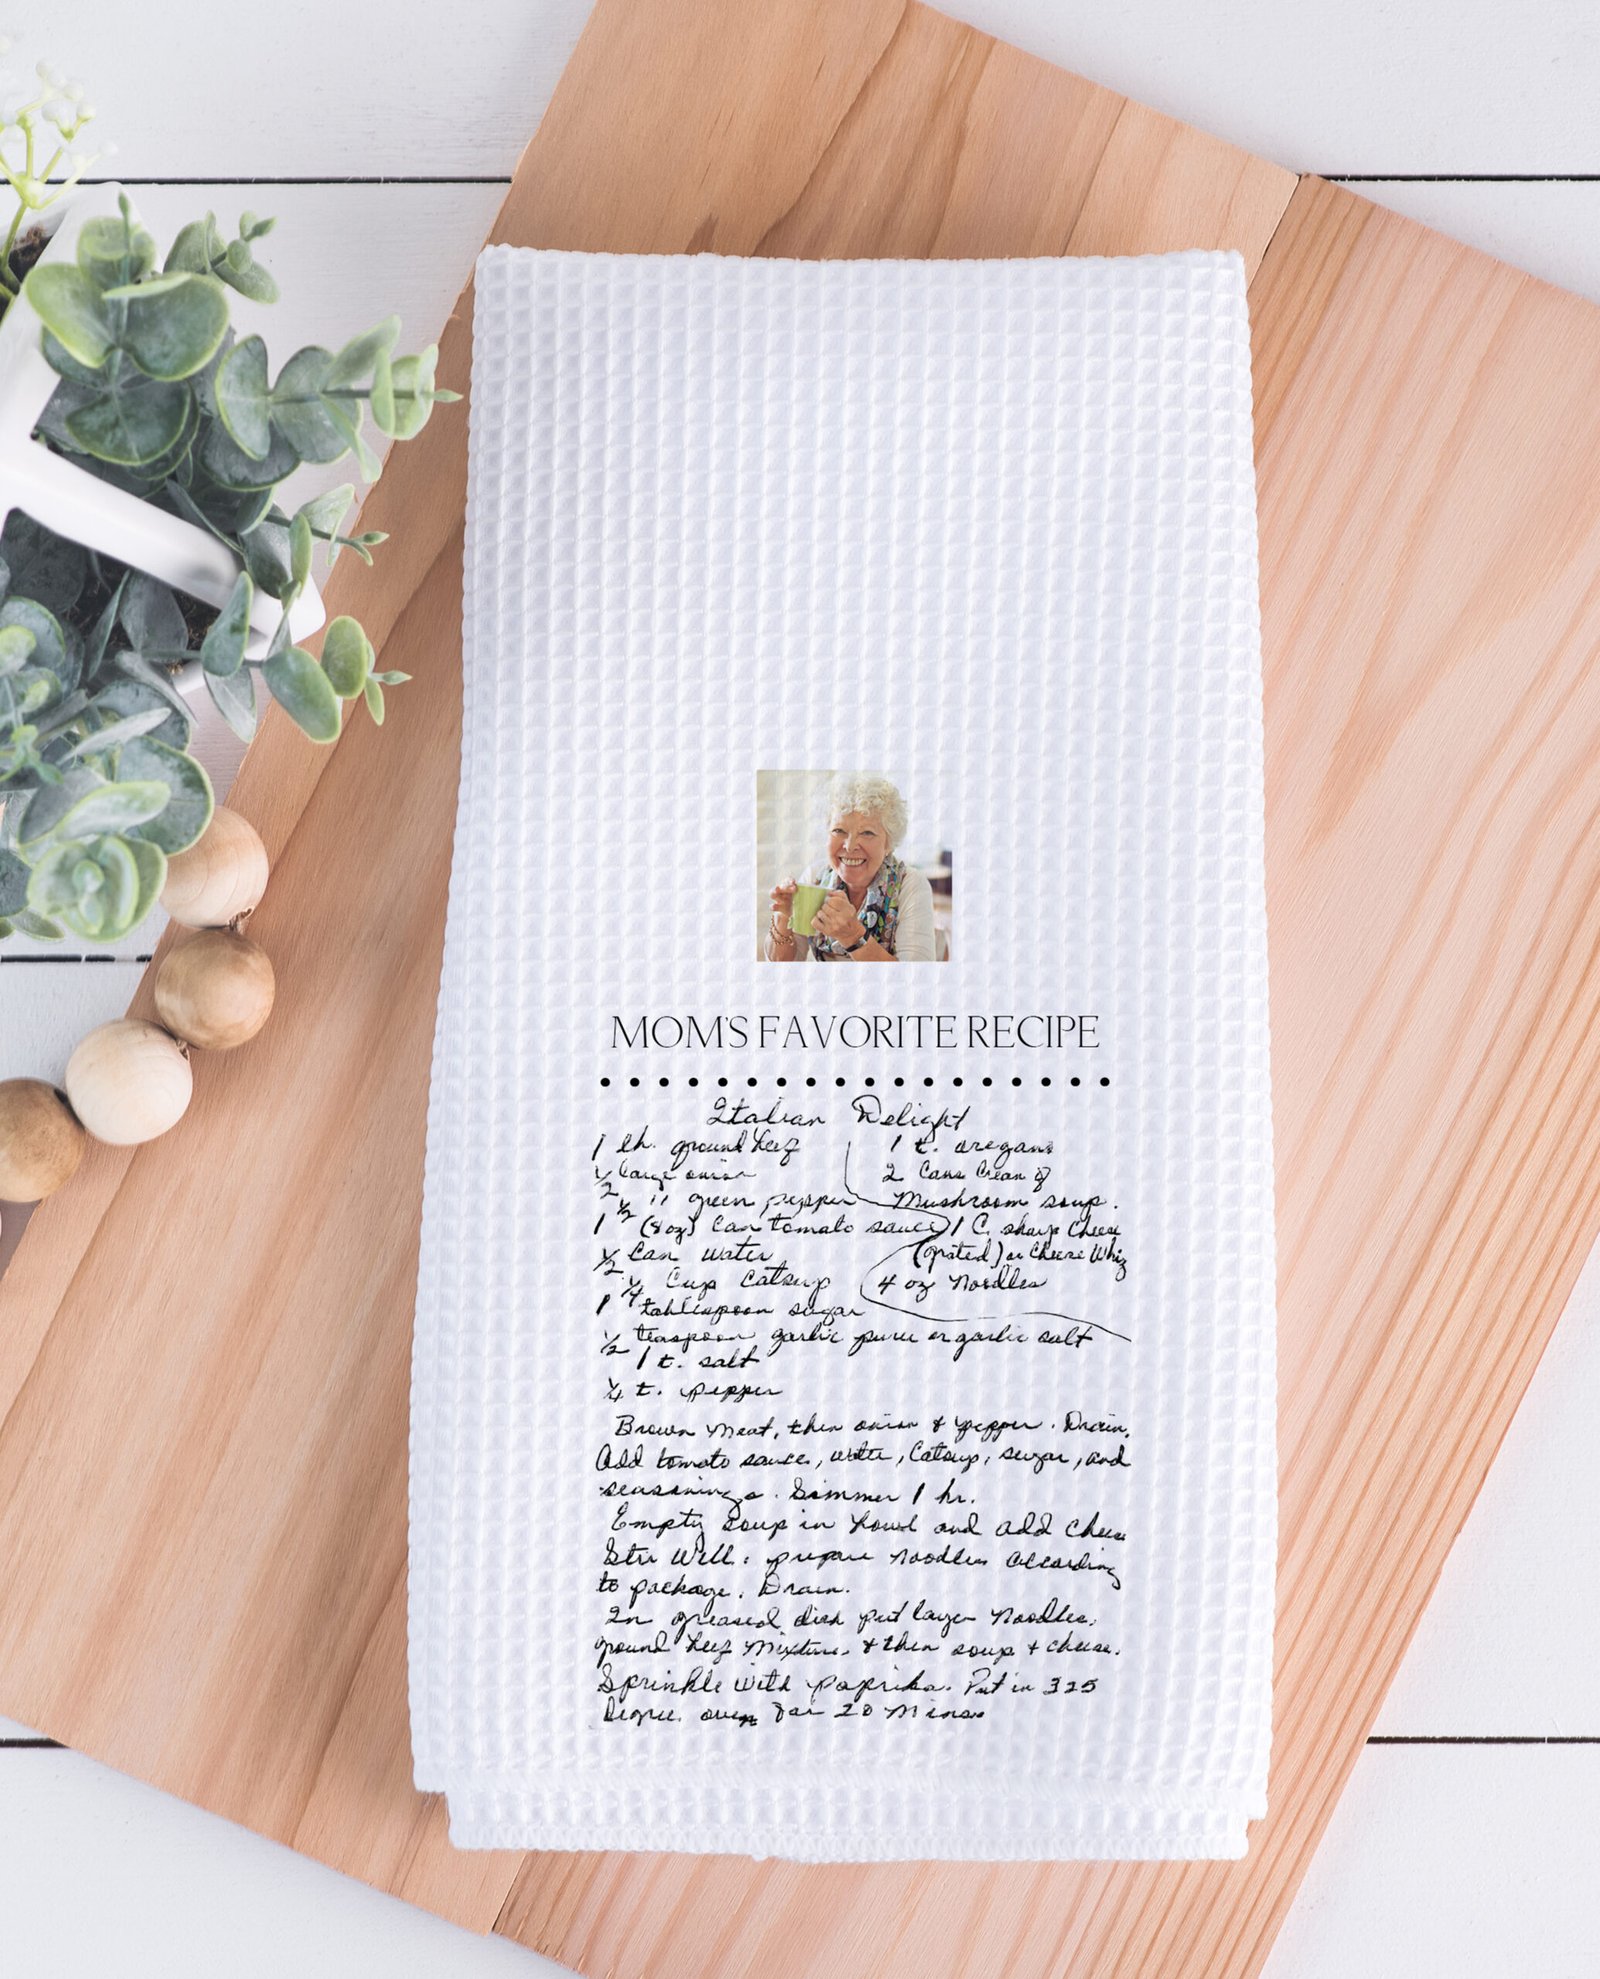 MOM'S FAVORITE RECIPE
Italian Delight
1 lb. ground beef
1/2 large onion
1/2 " green pepper
1 (8 oz) Can tomato sauce
1/2 Can water
1/4 Cup Catsup
1 tablespoon sugar
1/2 teaspoon garlic puree or garlic salt
1 t. salt
1/4 t. pepper
1 t. oregano
2 Cans Cream of
Mushroom soup.
1 C. sharp Cheese
(grated) or Cheese Whiz
4 oz Noodles
Brown meat, then onion & pepper. Drain.
Add tomato sauce, water, Catsup, sugar, and
seasonings. Simmer 1 hr.
Empty soup in bowl and add cheese
Stir Well. prepare noodles according
to package. Drain.
In greased dish put layer Noodles,
ground beef mixture & then soup & cheese.
Sprinkle with paprika. Put in 325
Degree oven for 20 Mins.